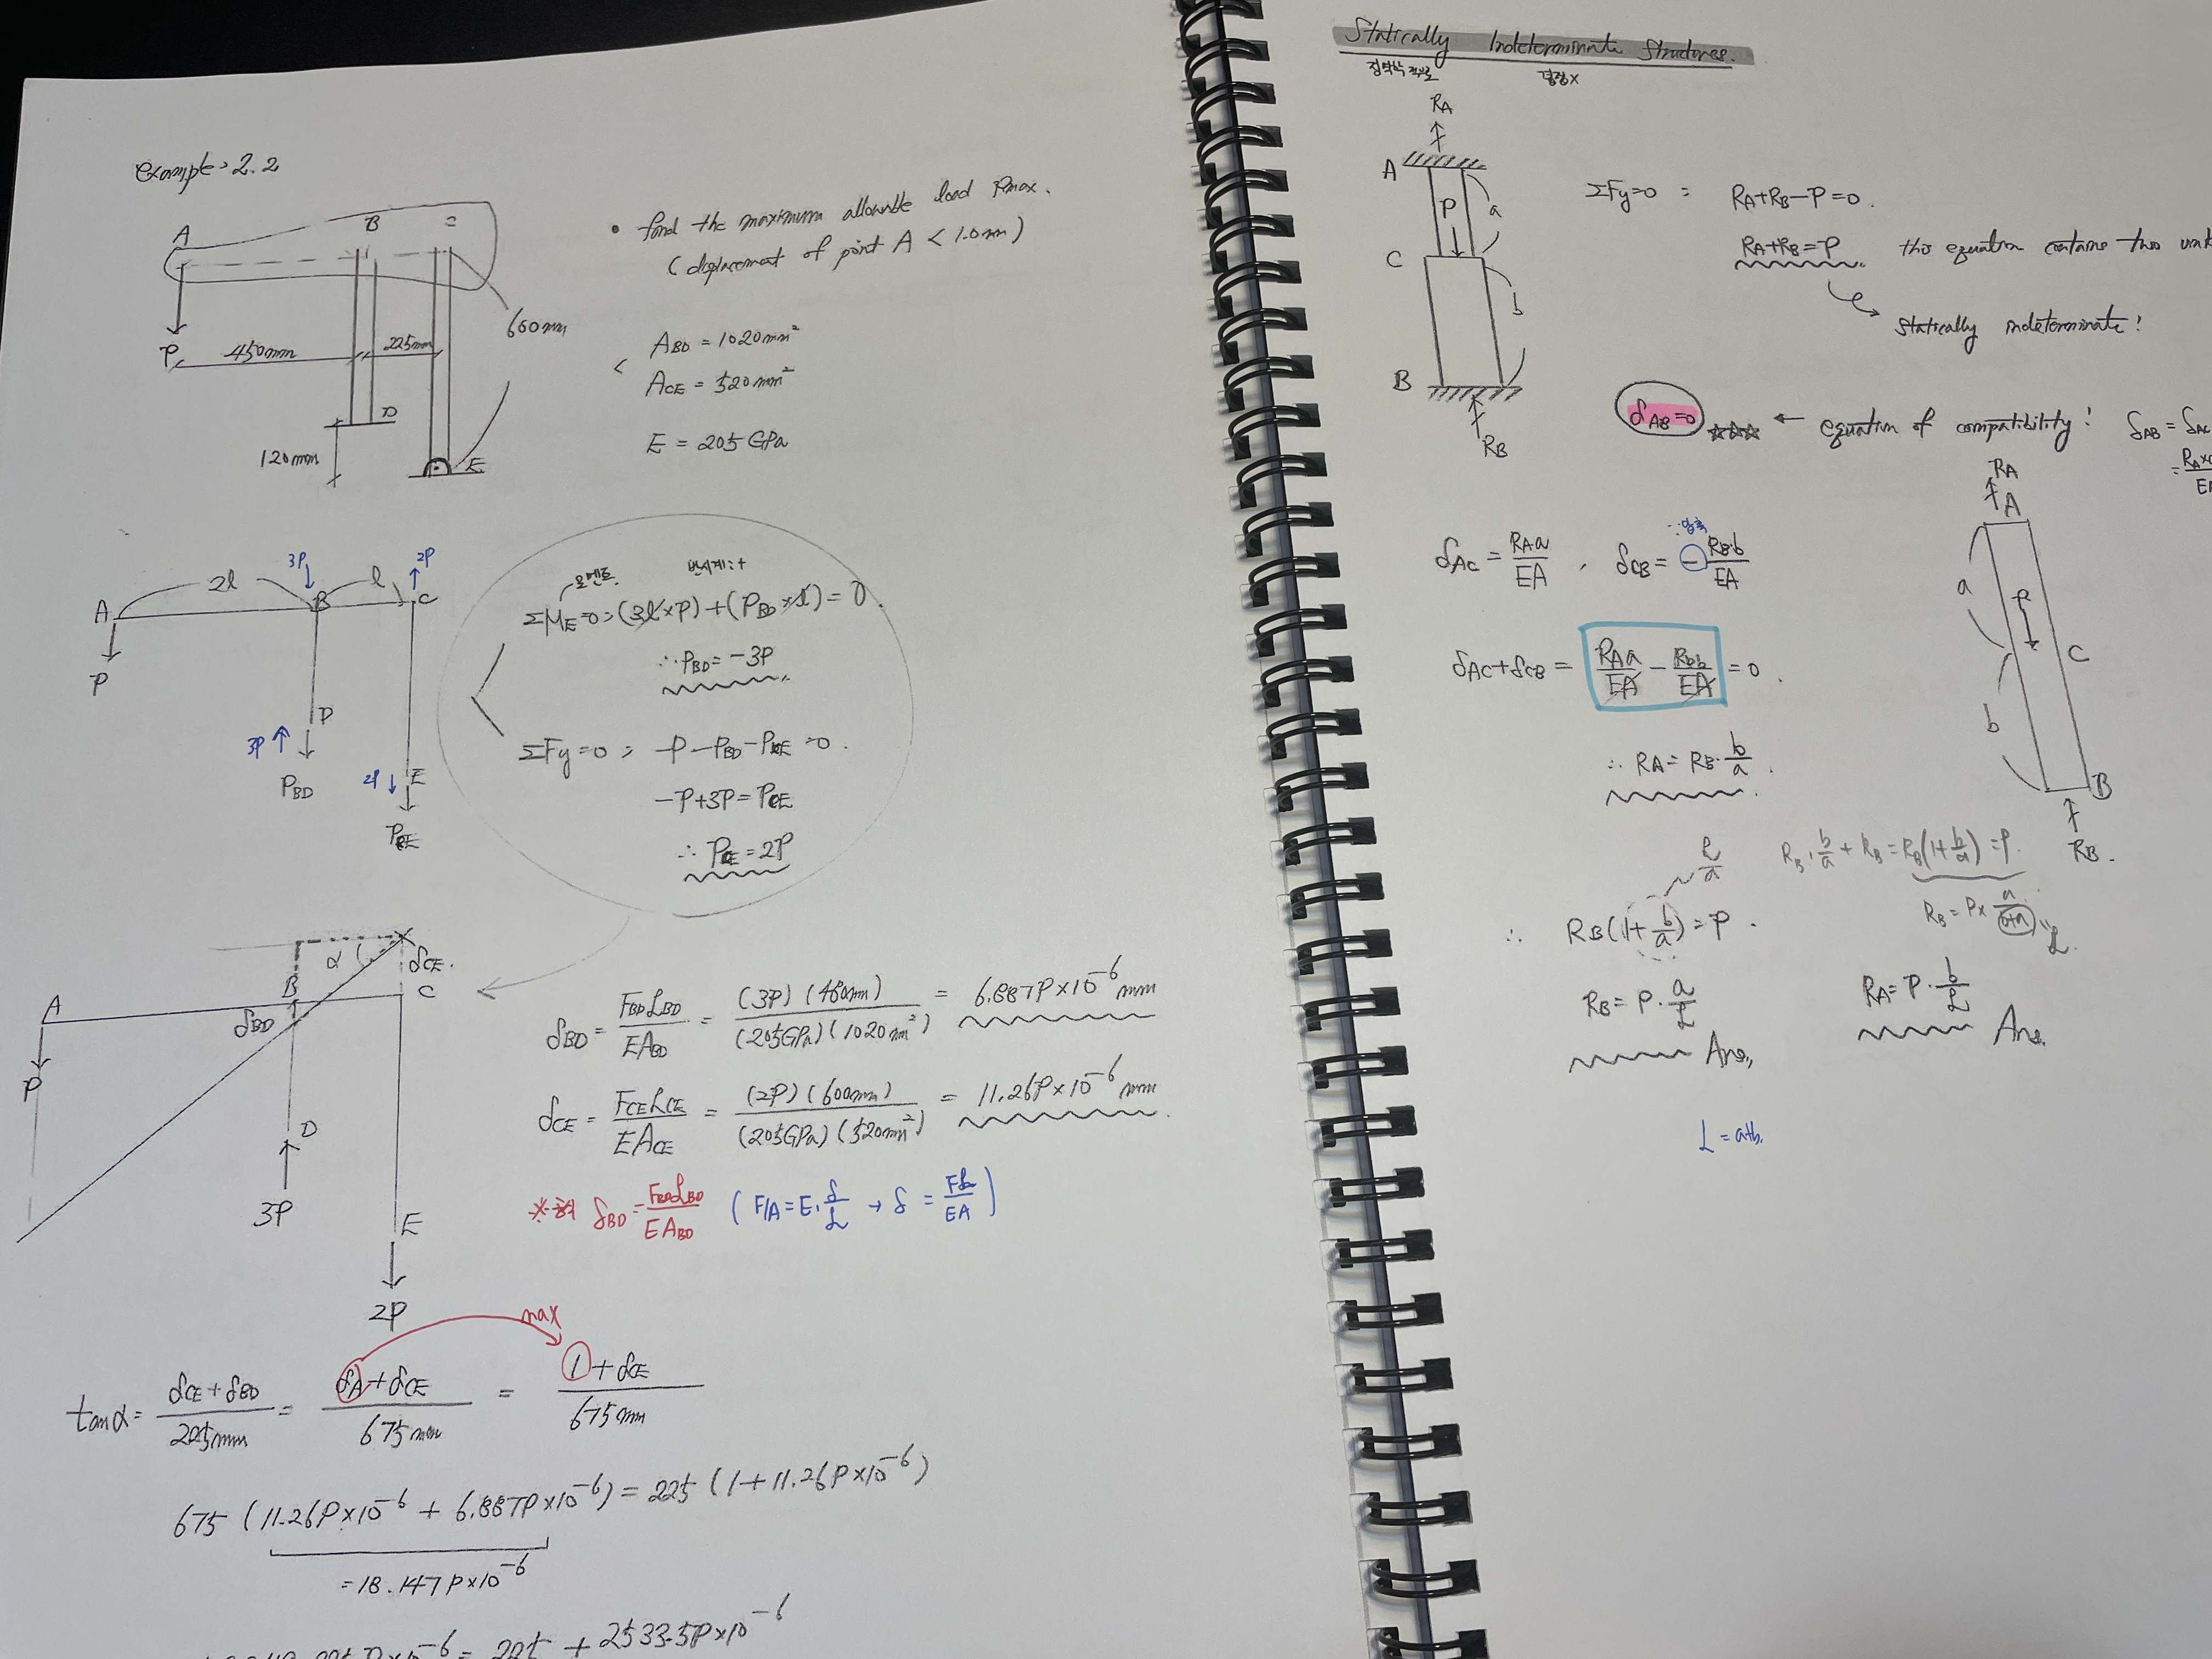 example > 2.2
A
B
C
• find the maximum allowable load Pmax.
(displacement of point A < 1.0mm)
600mm
P
450mm
225mm
ABD = 1020mm²
ACE = 520mm²
D
120mm
E
E = 205 GPa
3P
2P
2l
l
A
B
C
P
모멘트
반시계:+
ΣME=0 > (3l×P)+(PBD×l)=0.
∴PBD=-3P
D
3P
2P
E
PBD
PCE
ΣFy=0 > -P-PBD-PCE=0.
-P+3P=PCE
∴ PCE=2P
α
δCE.
A
B
C
δBD
P
D
3P
E
2P
δBD = FBD LBD / EABD = (3P)(480mm) / (205GPa)(1020mm²) = 6.887P×10⁻⁶ mm
δCE = FCE LCE / EACE = (2P)(600mm) / (205GPa)(520mm²) = 11.26P×10⁻⁶ mm
δBD = FBD LBD / EABD (F/A=E·δ/L → δ = FL/EA)
max
tanα = δCE+δBD / 225mm = δA+δCE / 675mm = 1+δCE / 675mm
675 (11.26P×10⁻⁶ + 6.887P×10⁻⁶) = 225 (1+11.26P×10⁻⁶)
=18.147P×10⁻⁶
= 225 + 2533.5P×10⁻⁶
Statically Indeterminate Structures.
RA
A
P
a
C
b
B
RB
ΣFy=0 : RA+RB-P=0.
RA+RB=P. this equation contains two
Statically indeterminate!
δAB=0 ☆☆☆ ← equation of compatibility! δAB = δAC
δAC = RAa / EA , δCB = ⊖ RB·b / EA
RA
A
a
P
C
b
B
RB.
δAC+δCB = RAa / EA - RBb / EA = 0.
∴ RA=RB·b/a.
RB·b/a+RB=RB(1+b/a)=P.
RB=P× a/(b+a)
L
L/a
∴ RB(1+b/a)=P.
RB=P·a/L Ans,
RA=P·b/L Ans.
L=a+b.